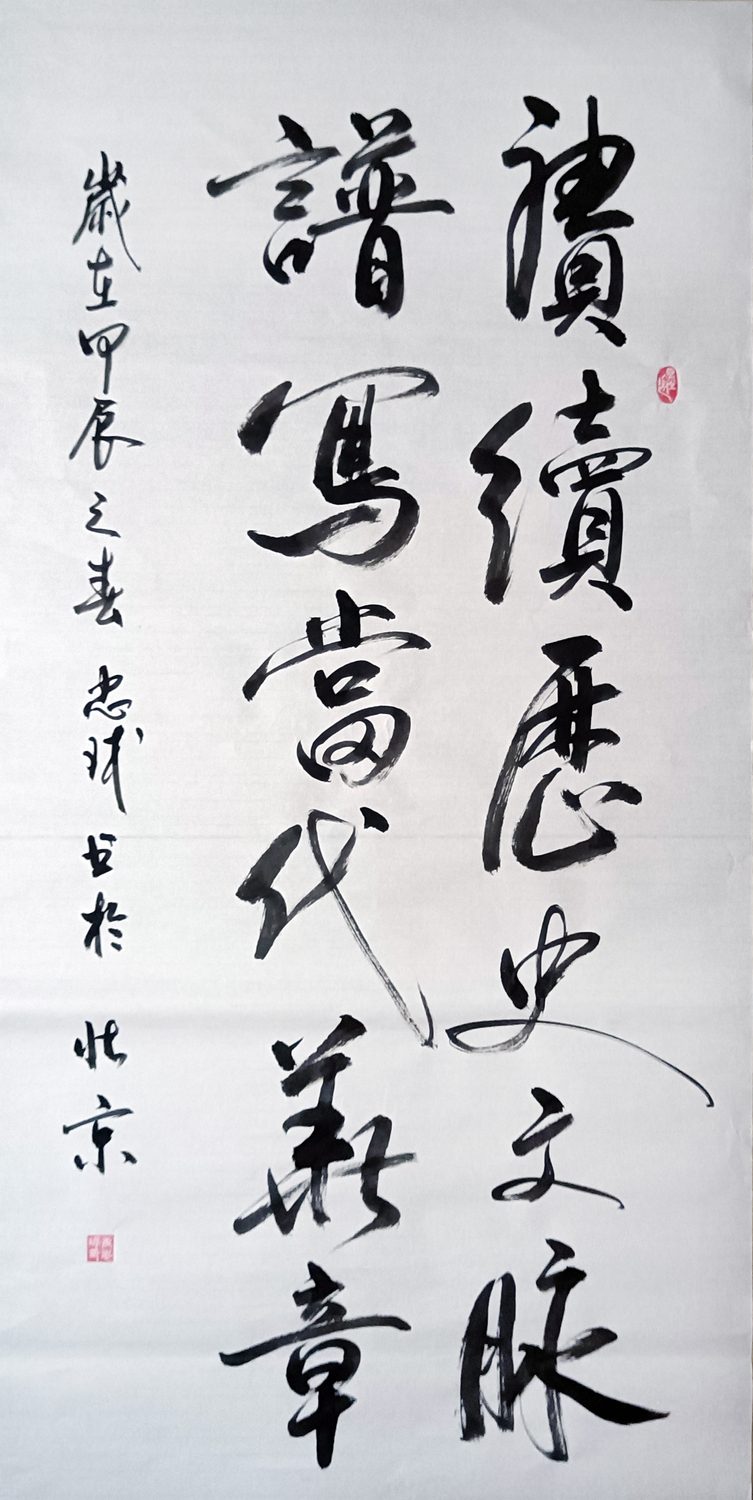 賡續歷史文脈
譜寫當代華章
歲在甲辰之春 忠 書於 北京